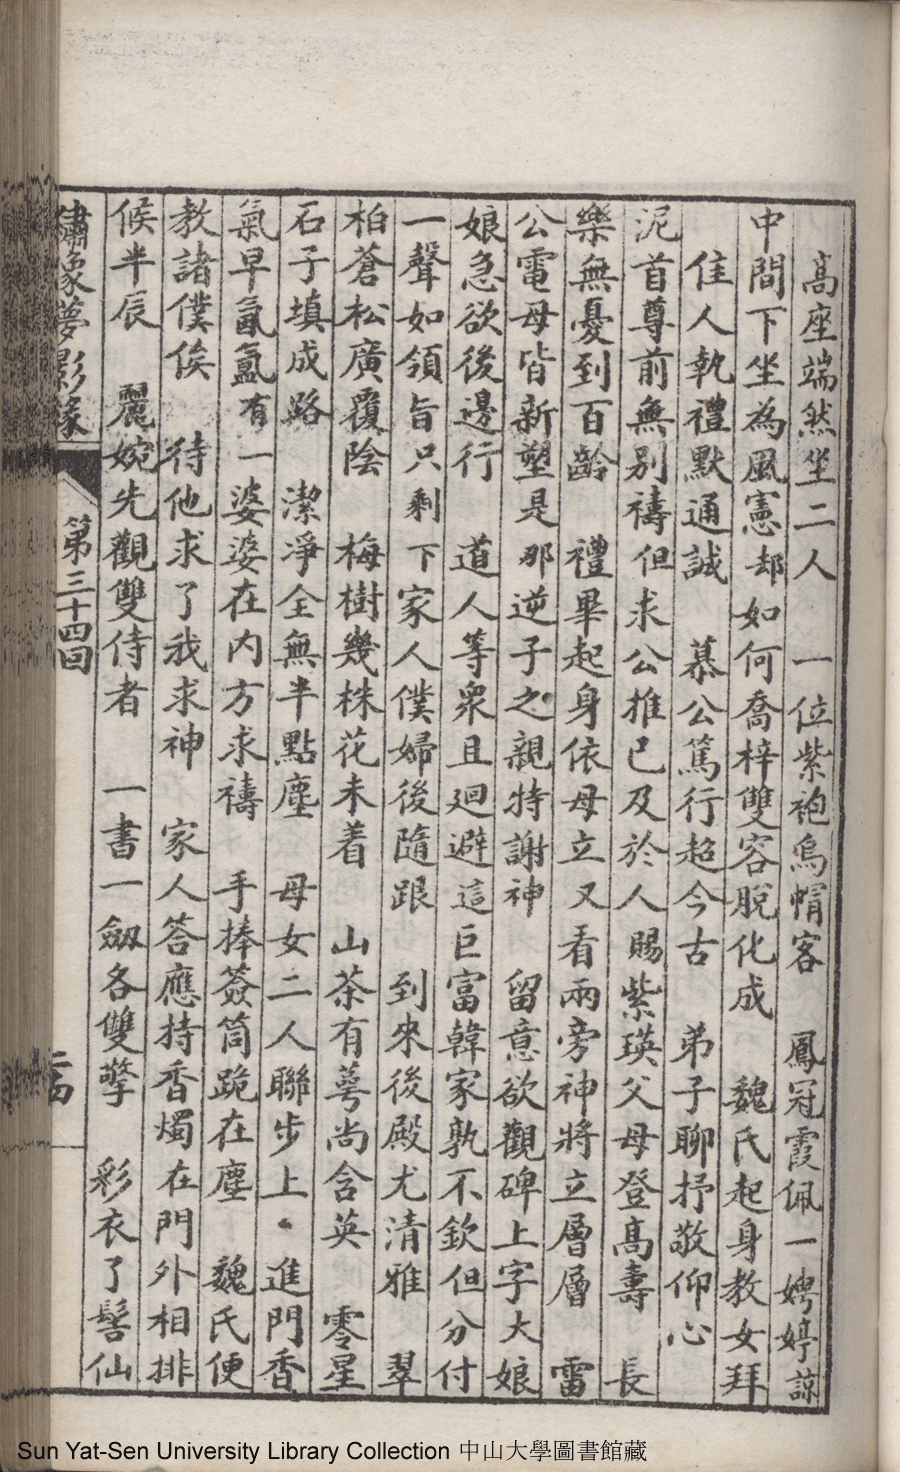 高座端然坐二人　一位紫袍烏帽客　鳳冠霞佩一娉婷諒
中間下坐為風憲却如何喬梓雙容脫化成　魏氏起身教女拜
佳人執禮默通誠　慕公篤行超今古　弟子聊抒敬仰心
泥首尊前無別禱但求公推已及於人賜紫瑛父母登高壽　長
樂無憂到百齡　禮畢起身依母立又看兩旁神將立層層　雷
公電母皆新塑是那逆子之親特謝神　留意欲觀碑上字大娘
娘急欲後邊行　道人等衆且廻避這巨富韓家孰不欽但分付
一聲如領旨只剩下家人僕婦後隨跟　到來後殿尤清雅　翠
柏蒼松廣覆陰　梅樹幾株花未着　山茶有萼尚含英　零星
石子填成路　潔凈全無半點塵　母女二人聯步上・進門香
氣早氤氳有一婆婆在内方求禱　手捧簽筒跪在塵　魏氏便
教諸僕俟　待他求了我求神　家人答應持香燭在門外相排
候半辰　麗婉先觀雙侍者　一書一劔各雙擎　彩衣了髻仙
繡象夢影緣　第三十四回　二四
Sun Yat-Sen University Library Collection 中山大學圖書館藏